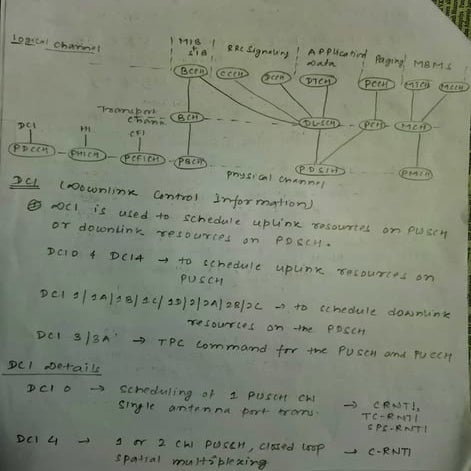 MIB + SIB
RRC Signaling
Application Data
Paging
MBMS
Logical Channel
BCCH CCCH DCCH DTCH PCCH MTCH MCCH
Transport Channel
BCH DLSCH PCH MCH
DCI HI CFI
PDCCH PHICH PCFICH PBCH PDSCH PMCH
Physical Channel
DCI (Downlink Control Information)
DCI is used to schedule uplink resources on PUSCH
or downlink resources on PDSCH.
DCI 0 & DCI 4 → to schedule uplink resources on
PUSCH
DCI 1/1A/1B/1C/1D/2/2A/2B/2C → to schedule downlink
resources on the PDSCH
DCI 3/3A → TPC command for the PUSCH and PUCCH
DCI Details
DCI 0 → scheduling of 1 PUSCH CW → CRNTI,
single antenna port trans. TC-RNTI
SPS-RNTI
DCI 4 → 1 or 2 CW PUSCH, closed loop → C-RNTI
spatial multiplexing